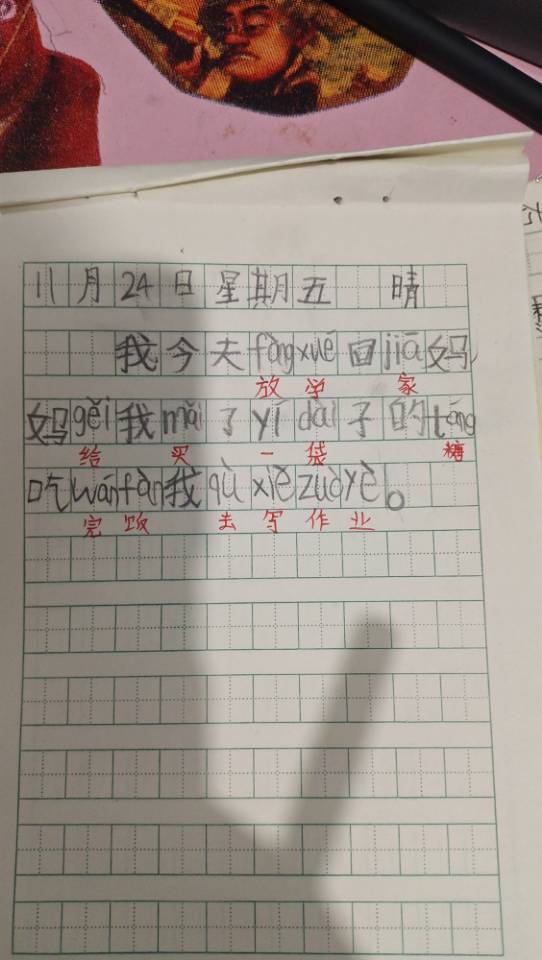 11月24日星期五 晴
我今天fàngxué回jiā妈
放学 家
妈gěi我mǎi了yí dài子的táng
给 买 一 袋 糖
吃wánfàn我qù xiě zuòyè。
完饭 去 写 作 业